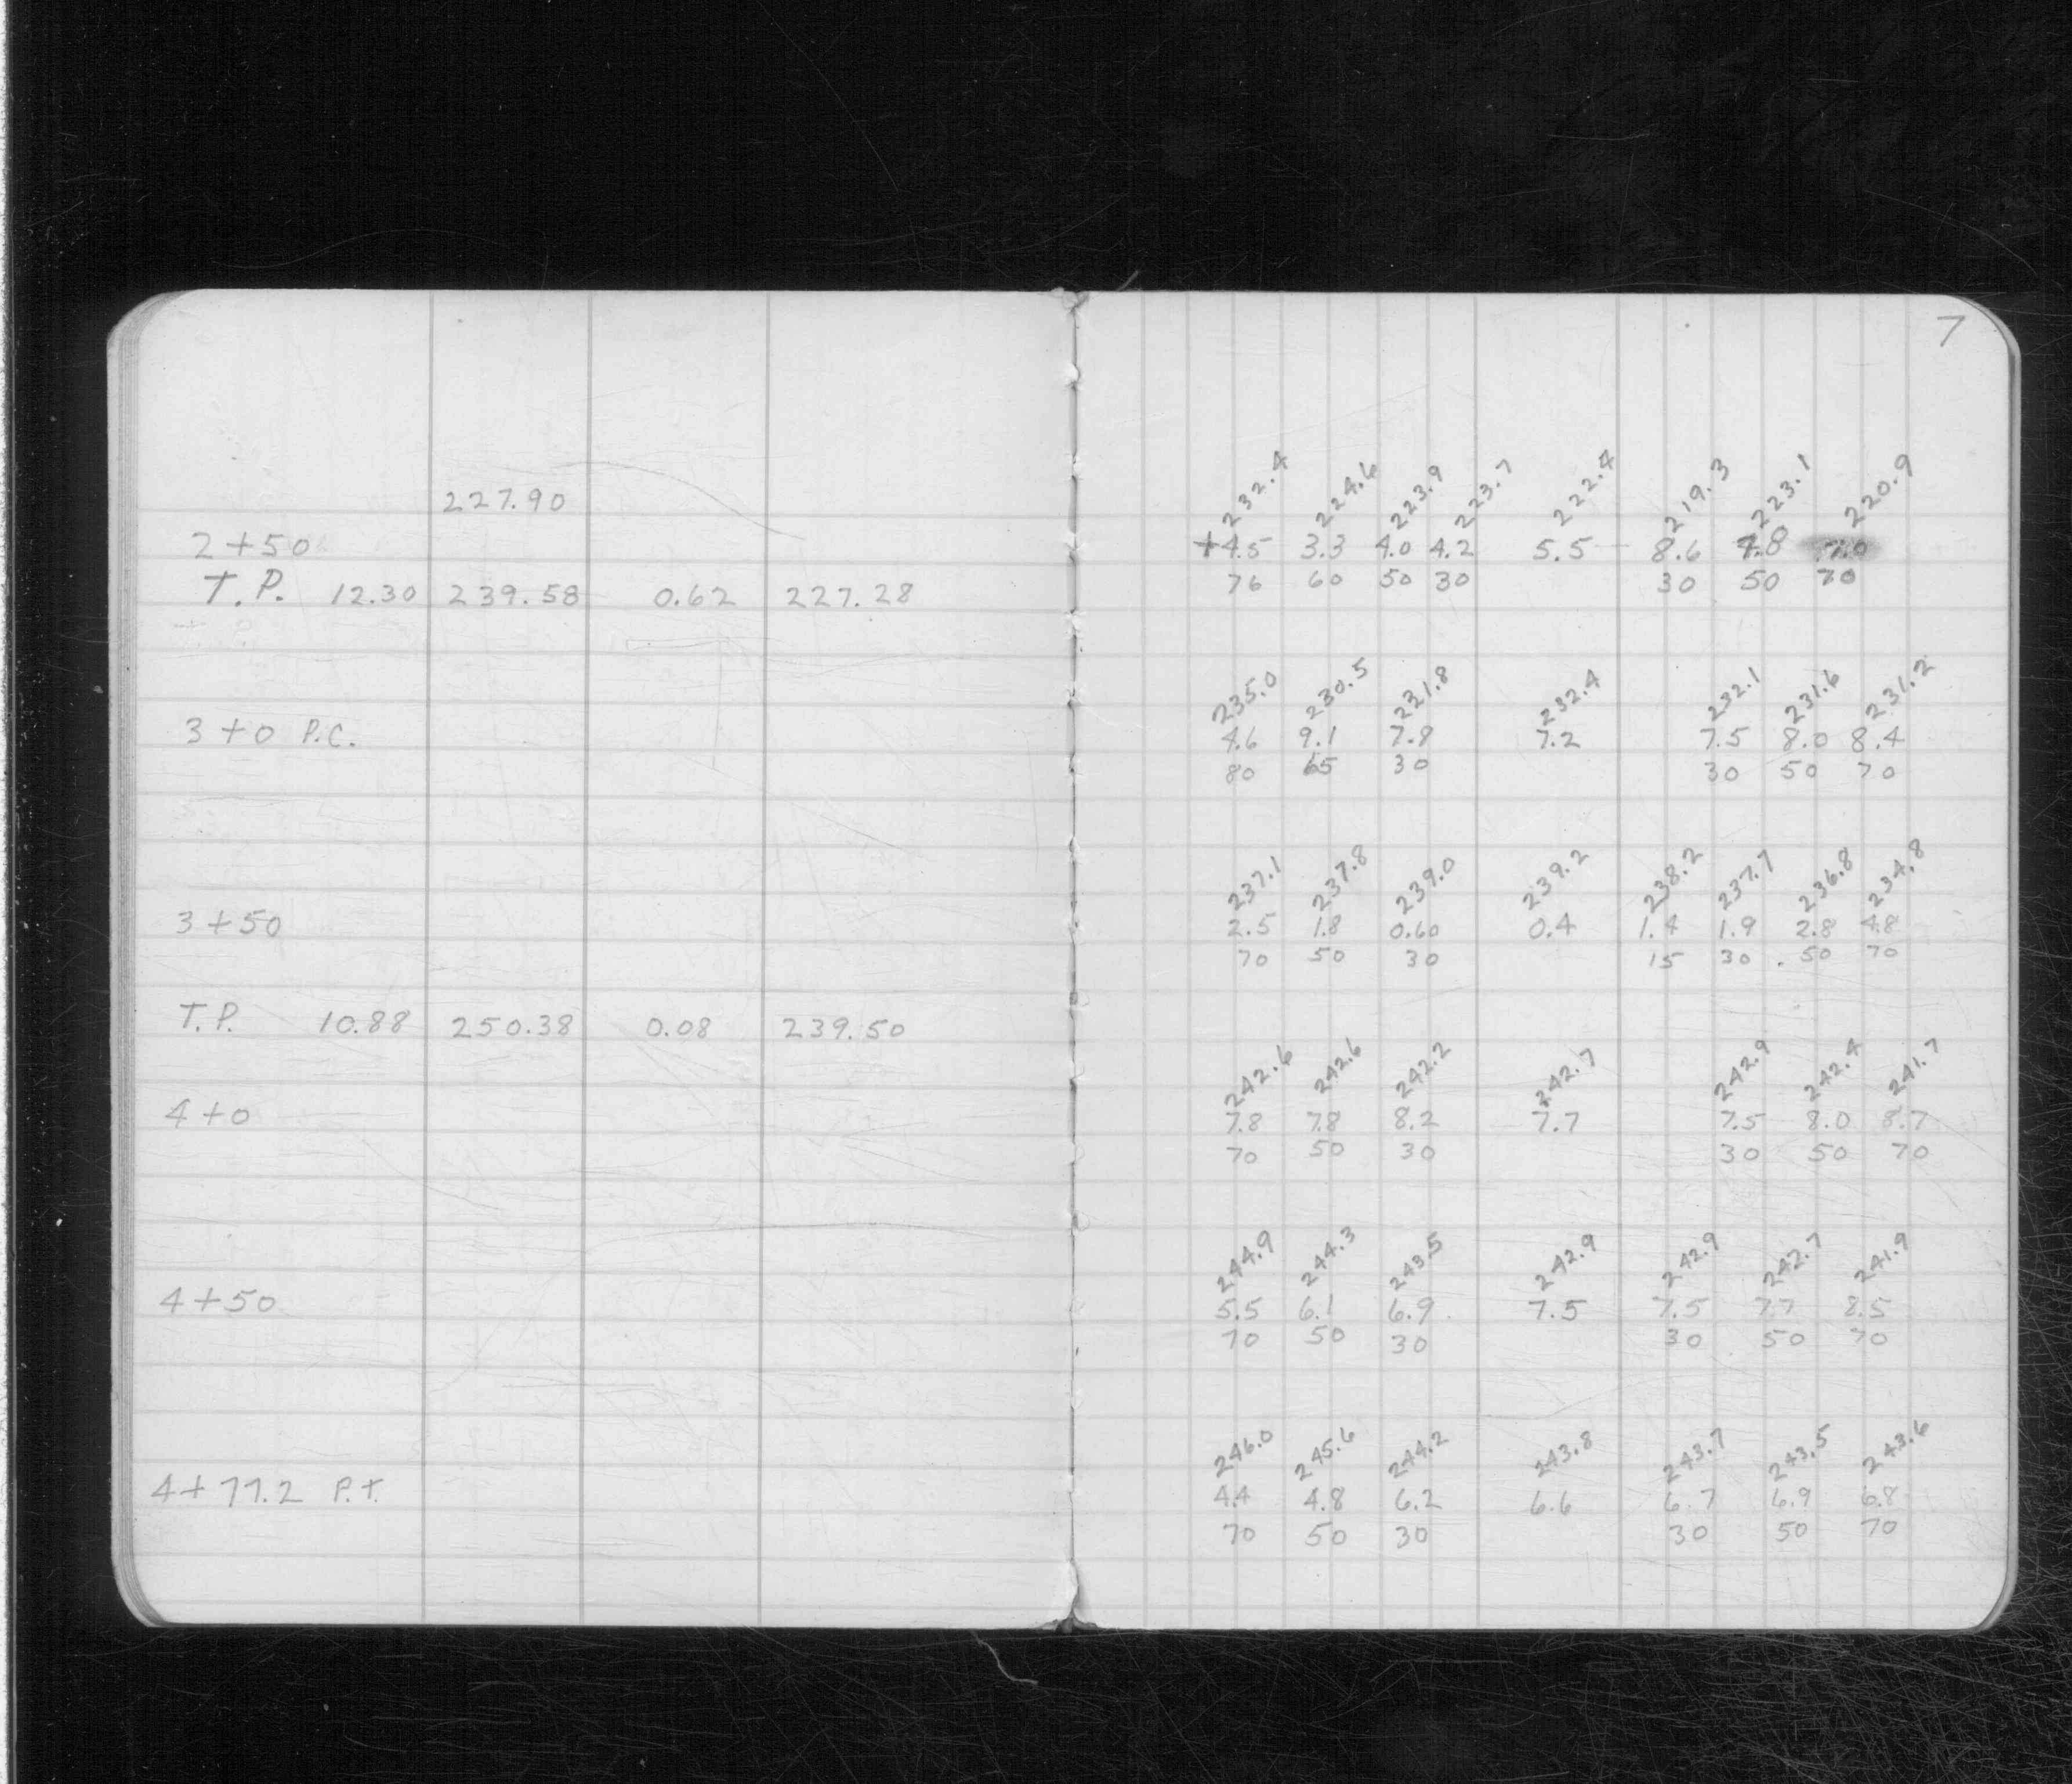 7
227.90
232.4 224.6 223.9 223.7 222.4 219.3 223.1 220.9
2+50 +4.5 3.3 4.0 4.2 5.5 8.6 4.8 7.0
76 60 50 30 30 50 70
T.P. 12.30 239.58 0.62 227.28
235.0 230.5 231.8 232.4 232.1 231.6 231.2
3+0 P.C. 4.6 9.1 7.8 7.2 7.5 8.0 8.4
80 65 30 30 50 70
237.1 237.8 239.0 239.2 238.2 237.7 236.8 234.8
3+50 2.5 1.8 0.60 0.4 1.4 1.9 2.8 4.8
70 50 30 15 30 50 70
T.P. 10.88 250.38 0.08 239.50
242.6 242.6 242.2 242.7 242.9 242.4 241.7
4+0 7.8 7.8 8.2 7.7 7.5 8.0 8.7
70 50 30 30 50 70
244.9 244.3 243.5 242.9 242.9 242.7 241.9
4+50 5.5 6.1 6.9 7.5 7.5 7.7 8.5
70 50 30 30 50 70
246.0 245.6 244.2 243.8 243.7 243.5 243.6
4+77.2 P.T. 4.4 4.8 6.2 6.6 6.7 6.9 6.8
70 50 30 30 50 70